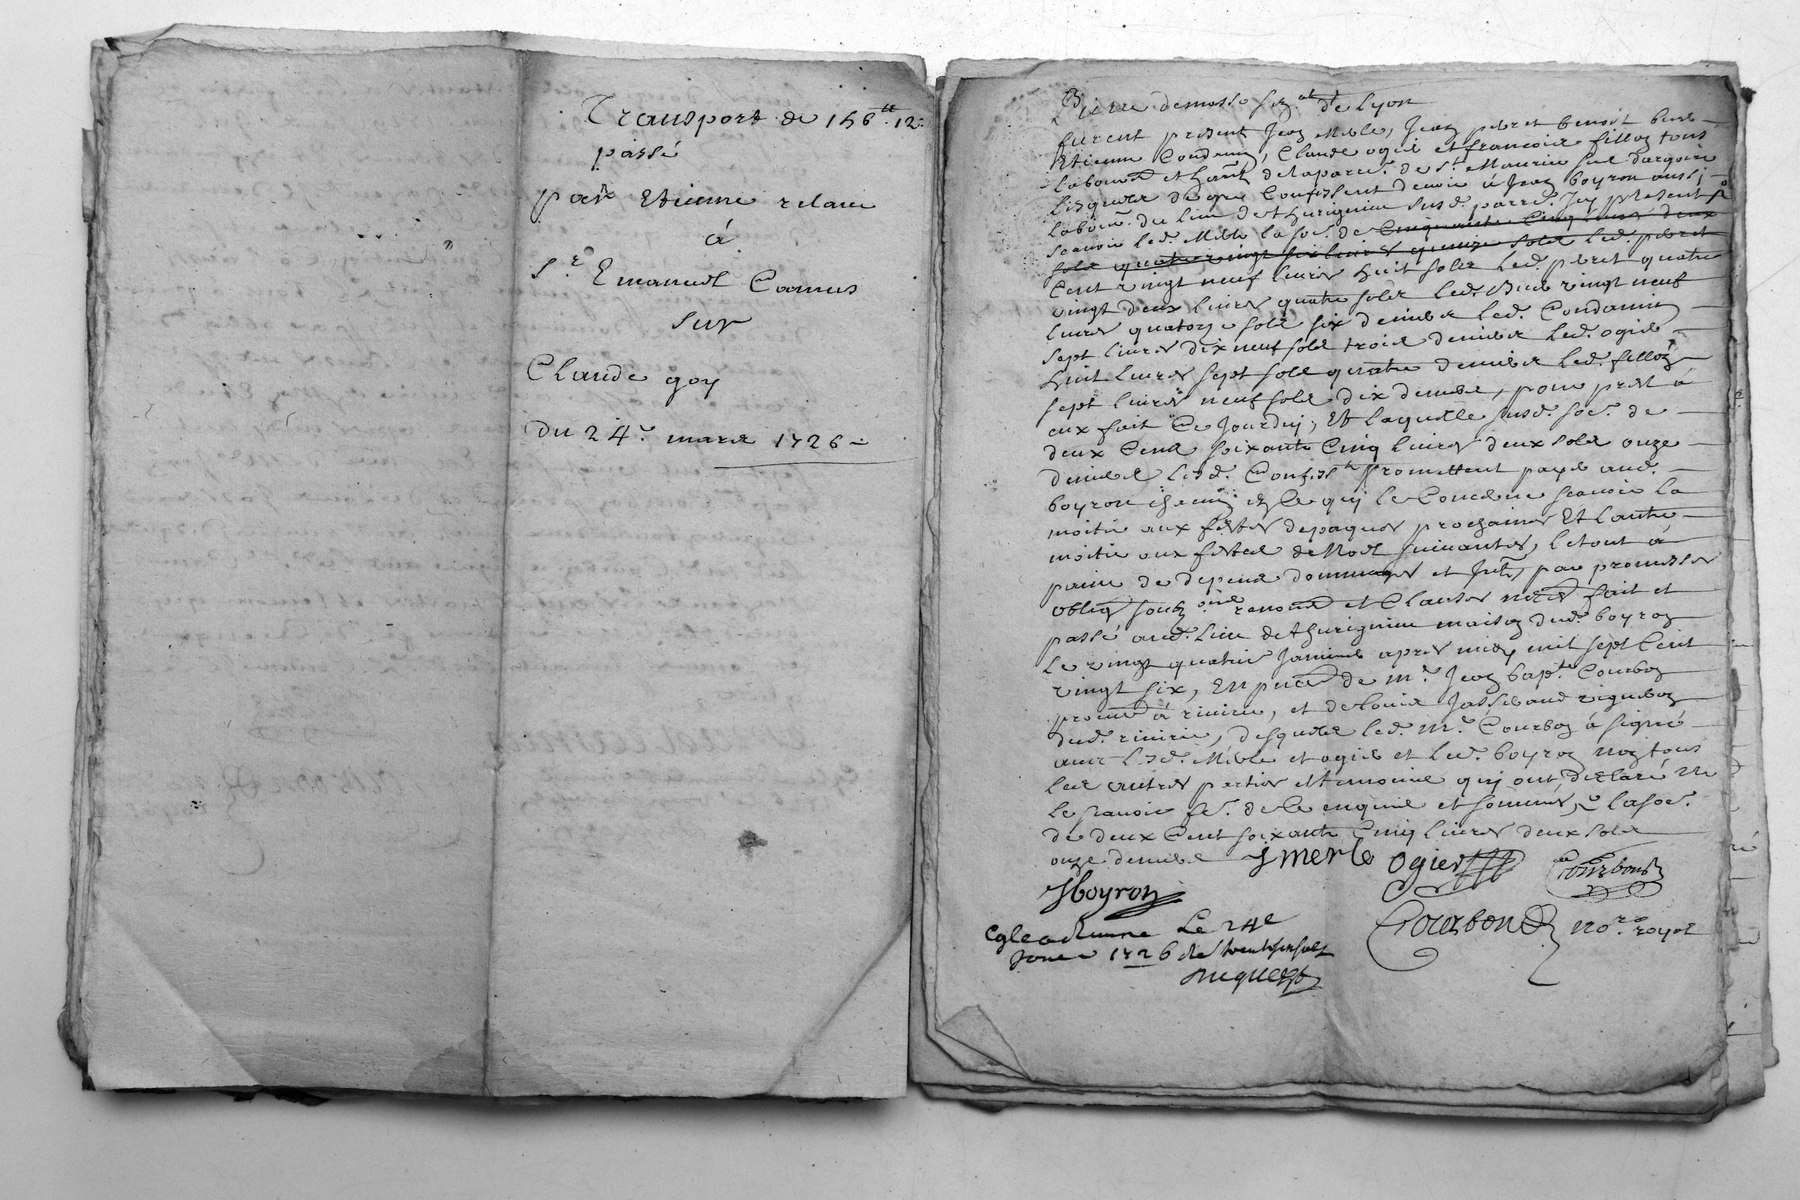 Transport de 146ᵗᵗ 12ˢ
passé
par Etienne relave
à
Sʳ Emanuel Camus
sur
Claude goy
du 24ᵉ mars 1726
de Lyon
furent présent Jean Merle, Jean peret benoit
Etienne Condamin, Claude ogier et francois fillon tous
laboureʳˢ et de la parreˢ de Sᵗ Maurice sur dargoire
lesquels de gre Confessent devoir à Jean boyron aussi
labourʳ du lieu de Thurignieu susd. parre. Icy présent
scavoir led. Merle la soᵉ. de Cinquante Cinq livres deux
sols quatre vingt six livres quinze sols led. peret
Cent vingt neuf livres huit sols led. peret quatre
vingt deux livres quatre sols led. vingt neuf
livres quatorze sols six deniers led. Condamin
sept livres dix neuf sols trois deniers led. ogier
huit livres sept sols quatre deniers led. fillon
sept livres neuf sols dix deniers, pour prest à
eux fait Ce Jourduy, Et laquelle susd. soᵉ. de
deux Cent soixante Cinq livres deux sols onze
deniers lesd. Confessᵗˢ promettent payer aud.
boyron chacun en Ce quy le Concerne scavoir la
moitié aux festes de paques prochaines Et lautre
moitié aux festes de Noel suivantes, le tout à
paine de depens dommages et par promesses
obligᵒⁿ et Clauses fait et
passé aud. lieu de Thurignieu maison dud. boyron
le vingt quatre Janvier apres midy mil sept Cent
vingt six, En pnce de Mʳ. Jean bapᵗᵉ Courbon
à riverie, et de Louis vigneron
dud. riverie, desquels led. Mʳ. Courbon à signé
avec lesd. Merle et ogier et led. boyron non tous
les autres parties et temoins quy ont declaré ne
le scavoir fᵉ. de Ce enquis et sommés, la soᵉ.
de deux Cent soixante Cinq livres deux sols
onze deniers J merle ogier Courbon
J boyron
Courbon noʳᵉ royal
Cgle a Le 24e
1726